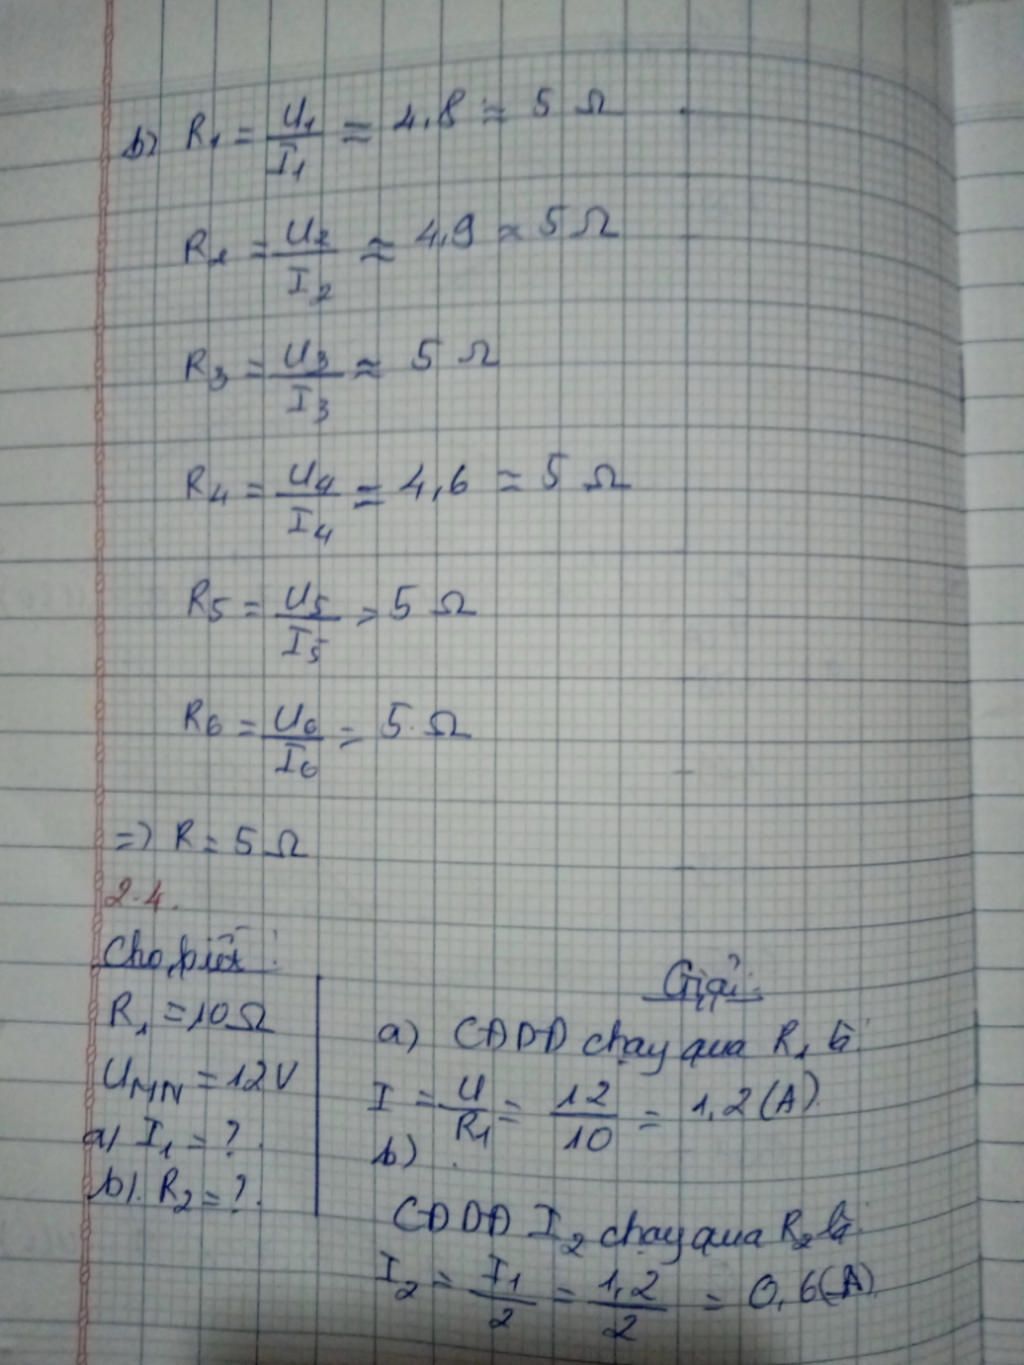 b) R1 = U1/I1 = 4,8 ≈ 5 Ω
R2 = U2/I2 ≈ 4,9 ≈ 5 Ω
R3 = U3/I3 ≈ 5 Ω
R4 = U4/I4 = 4,6 ≈ 5 Ω
R5 = U5/I5 = 5 Ω
R6 = U6/I6 = 5 Ω
=> R = 5 Ω
2.4.
Cho biết:
R1 = 10 Ω
UMN = 12V
a) I1 = ?
b) R2 = ?
Giải:
a) CĐDĐ chạy qua R1 là:
I = U/R1 = 12/10 = 1,2 (A)
b)
CĐDĐ I2 chạy qua R2 là:
I2 = I1/2 = 1,2/2 = 0,6 (A)